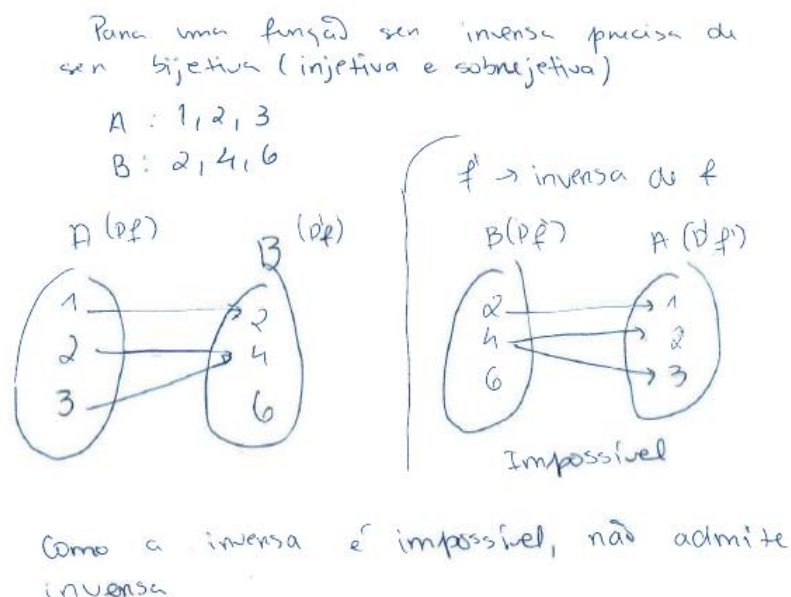 Para uma função ser inversa precisa de
ser bijetiva (injetiva e sobrejetiva)
A : 1, 2, 3
B : 2, 4, 6
A (Df)
B (D'f)
1
2
3
2
4
6
f' → inversa de f
B (Df')
A (D'f')
2
4
6
1
2
3
Impossível
Como a inversa é impossível, não admite
inversa